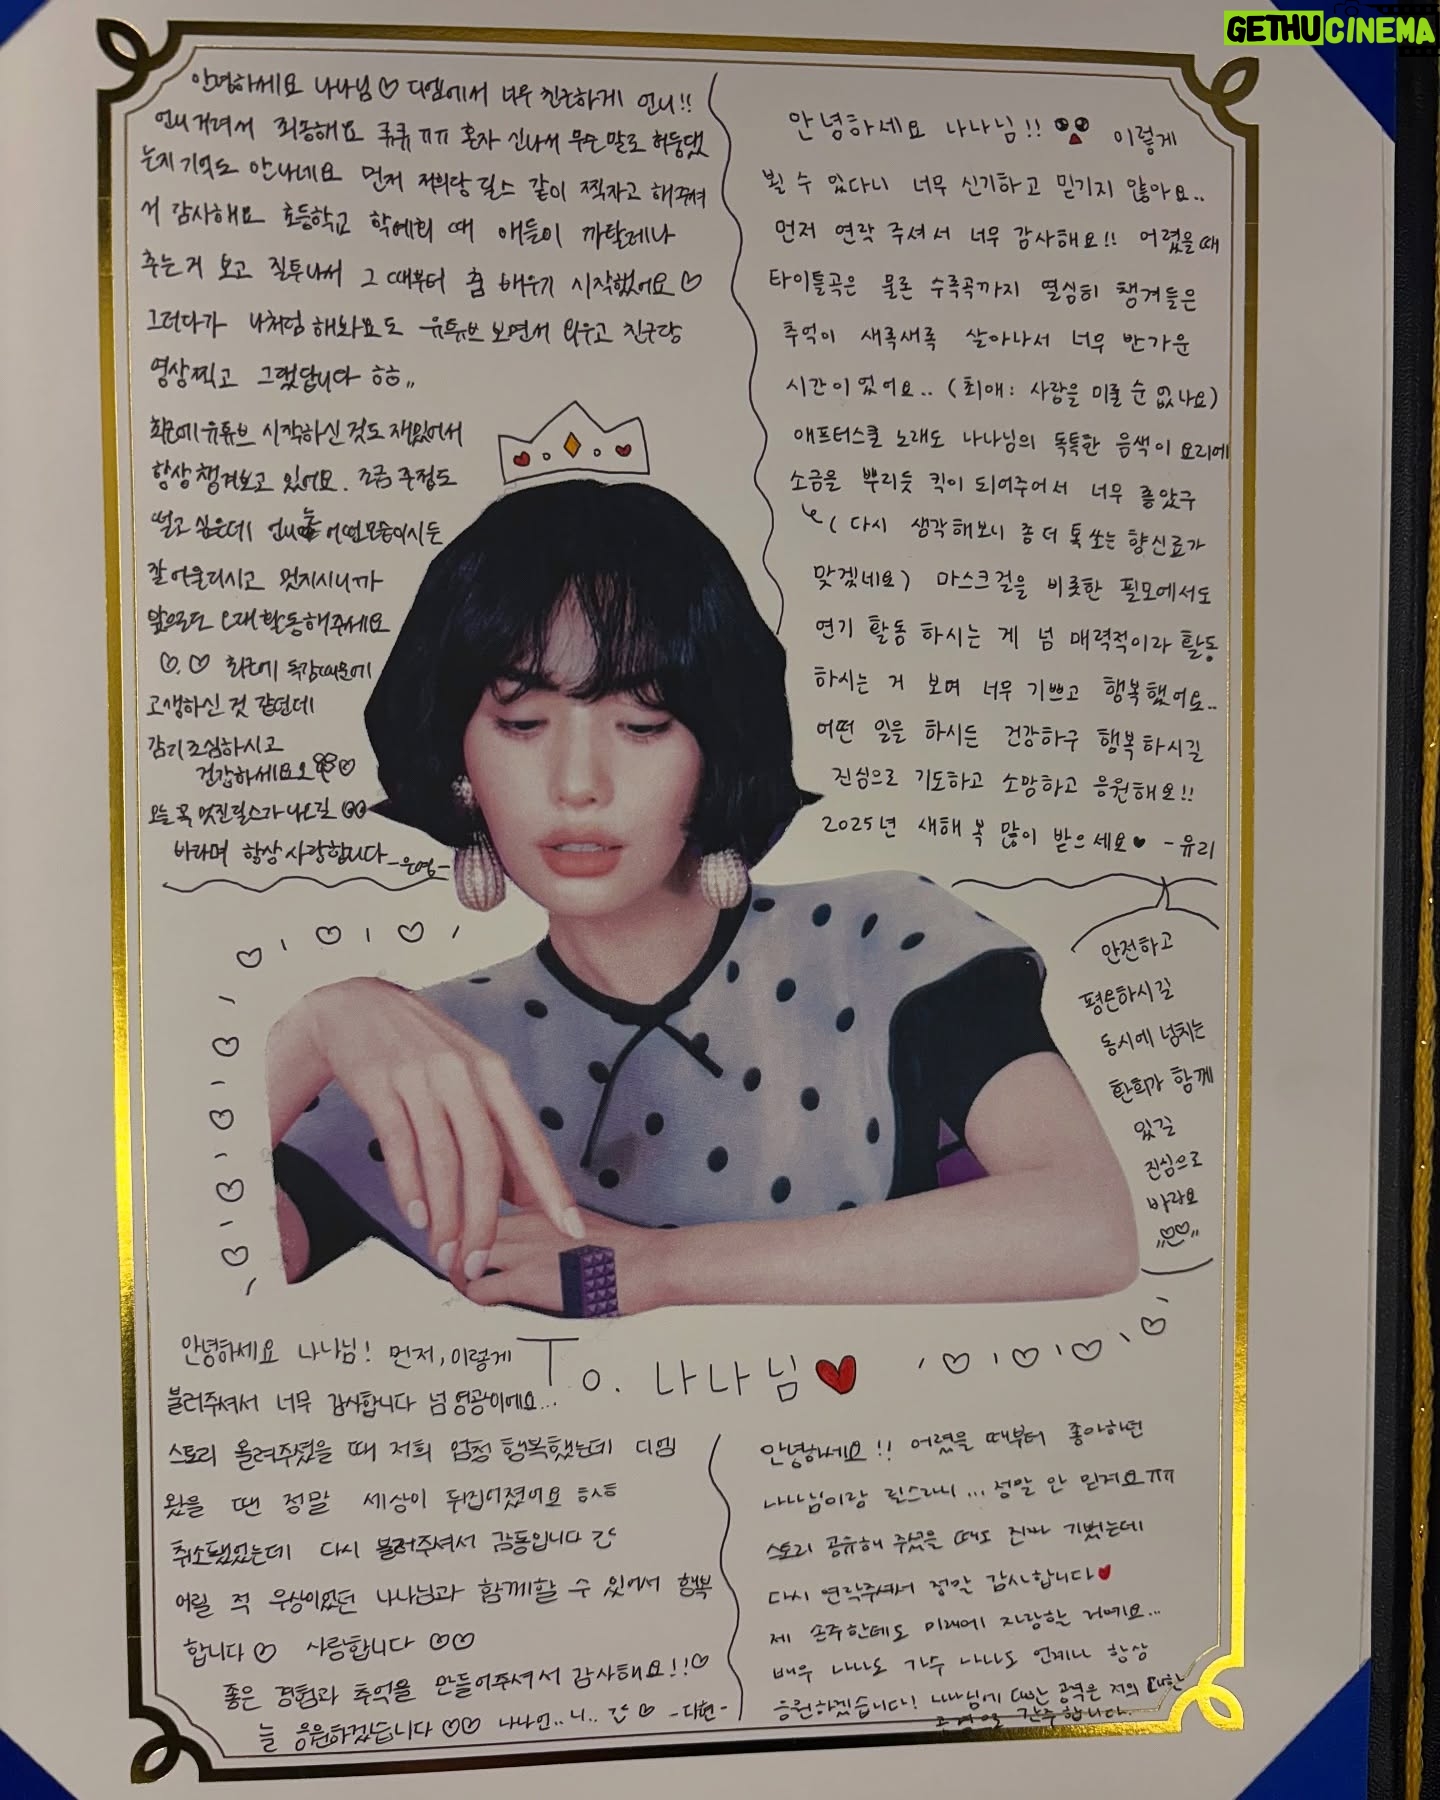 GETHUCINEMA
안녕하세요 나나님♡ 디엠에서 너무 친근하게 언니!!
언니 거려서 죄송해요 큐큐ㅠㅠ 혼자 신나서 무슨 말로 허둥댔
는지 기억도 안나네요 먼저 저희랑 릴스 같이 찍자고 해주셔
서 감사해요 초등학교 학예회 때 애들이 까탈레나
추는거 보고 질투나서 그 때부터 춤 배우기 시작했어요♡
그러다가 나처럼 해봐요도 유튜브 보면서 외우고 친구랑
영상찍고 그랬답니다 ㅎㅎ,,
최근에 유튜브 시작하신 것도 재밌어서
항상 챙겨보고 있어요. 조금 주접도
떨고 싶은데 언니는 어떤모습이시든
잘 어울리시고 멋지시니까
앞으로도 오래 활동해주세요
♡.♡ 최근에 독감때문에
고생하신 것 같던데
감기조심하시고
건강하세요오♡
오늘 꼭 멋진릴스가 나오길
바라며 항상 사랑합니다 -은영-
안녕하세요 나나님!! 이렇게
뵐 수 있다니 너무 신기하고 믿기지 않아요..
먼저 연락 주셔서 너무 감사해요!! 어렸을때
타이틀곡은 물론 수록곡까지 열심히 챙겨들은
추억이 새록새록 살아나서 너무 반가운
시간이었어요.. (최애: 사랑을 미룰 순 없나요)
애프터스쿨 노래도 나나님의 독특한 음색이 요리에
소금을 뿌리듯 킥이 되어주어서 너무 좋았구
(다시 생각해보니 좀 더 톡 쏘는 향신료가
맞겠네요) 마스크걸을 비롯한 필모에서도
연기 활동 하시는 게 넘 매력적이라 활동
하시는 거 보며 너무 기쁘고 행복했어요..
어떤 일을 하시든 건강하구 행복하시길
진심으로 기도하고 소망하고 응원해요!!
2025년 새해 복 많이 받으세요♥ -유리
안전하고
평온하시길
동시에 넘치는
환희가 함께
있길
진심으로
바라요
To. 나나님♥
안녕하세요 나나님! 먼저, 이렇게
불러주셔서 너무 감사합니다 넘 영광이에요...
스토리 올려주셨을 때 저희 엄청 행복했는데 디엠
왔을 땐 정말 세상이 뒤집어졌어요 ㅎㅅㅎ
취소됐었는데 다시 불러주셔서 감동입니다
어릴 적 우상이었던 나나님과 함께할 수 있어서 행복
합니다♡ 사랑합니다♡♡
좋은 경험과 추억을 만들어주셔서 감사해요!!♡
늘 응원하겠습니다♡♡ 나나언..니.. ♡ -다현-
안녕하세요!! 어렸을 때부터 좋아하던
나나님이랑 릴스라니... 정말 안 믿겨요ㅠㅠ
스토리 공유해 주셨을 때도 진짜 기뻤는데
다시 연락주셔서 정말 감사합니다♥
제 손주한테도 미래에 자랑할 거예요...
배우 나나도 가수 나나도 언제나 항상
응원하겠습니다! 나나님에 대한 공격은 저의 대한
공격으로 간주합니다.